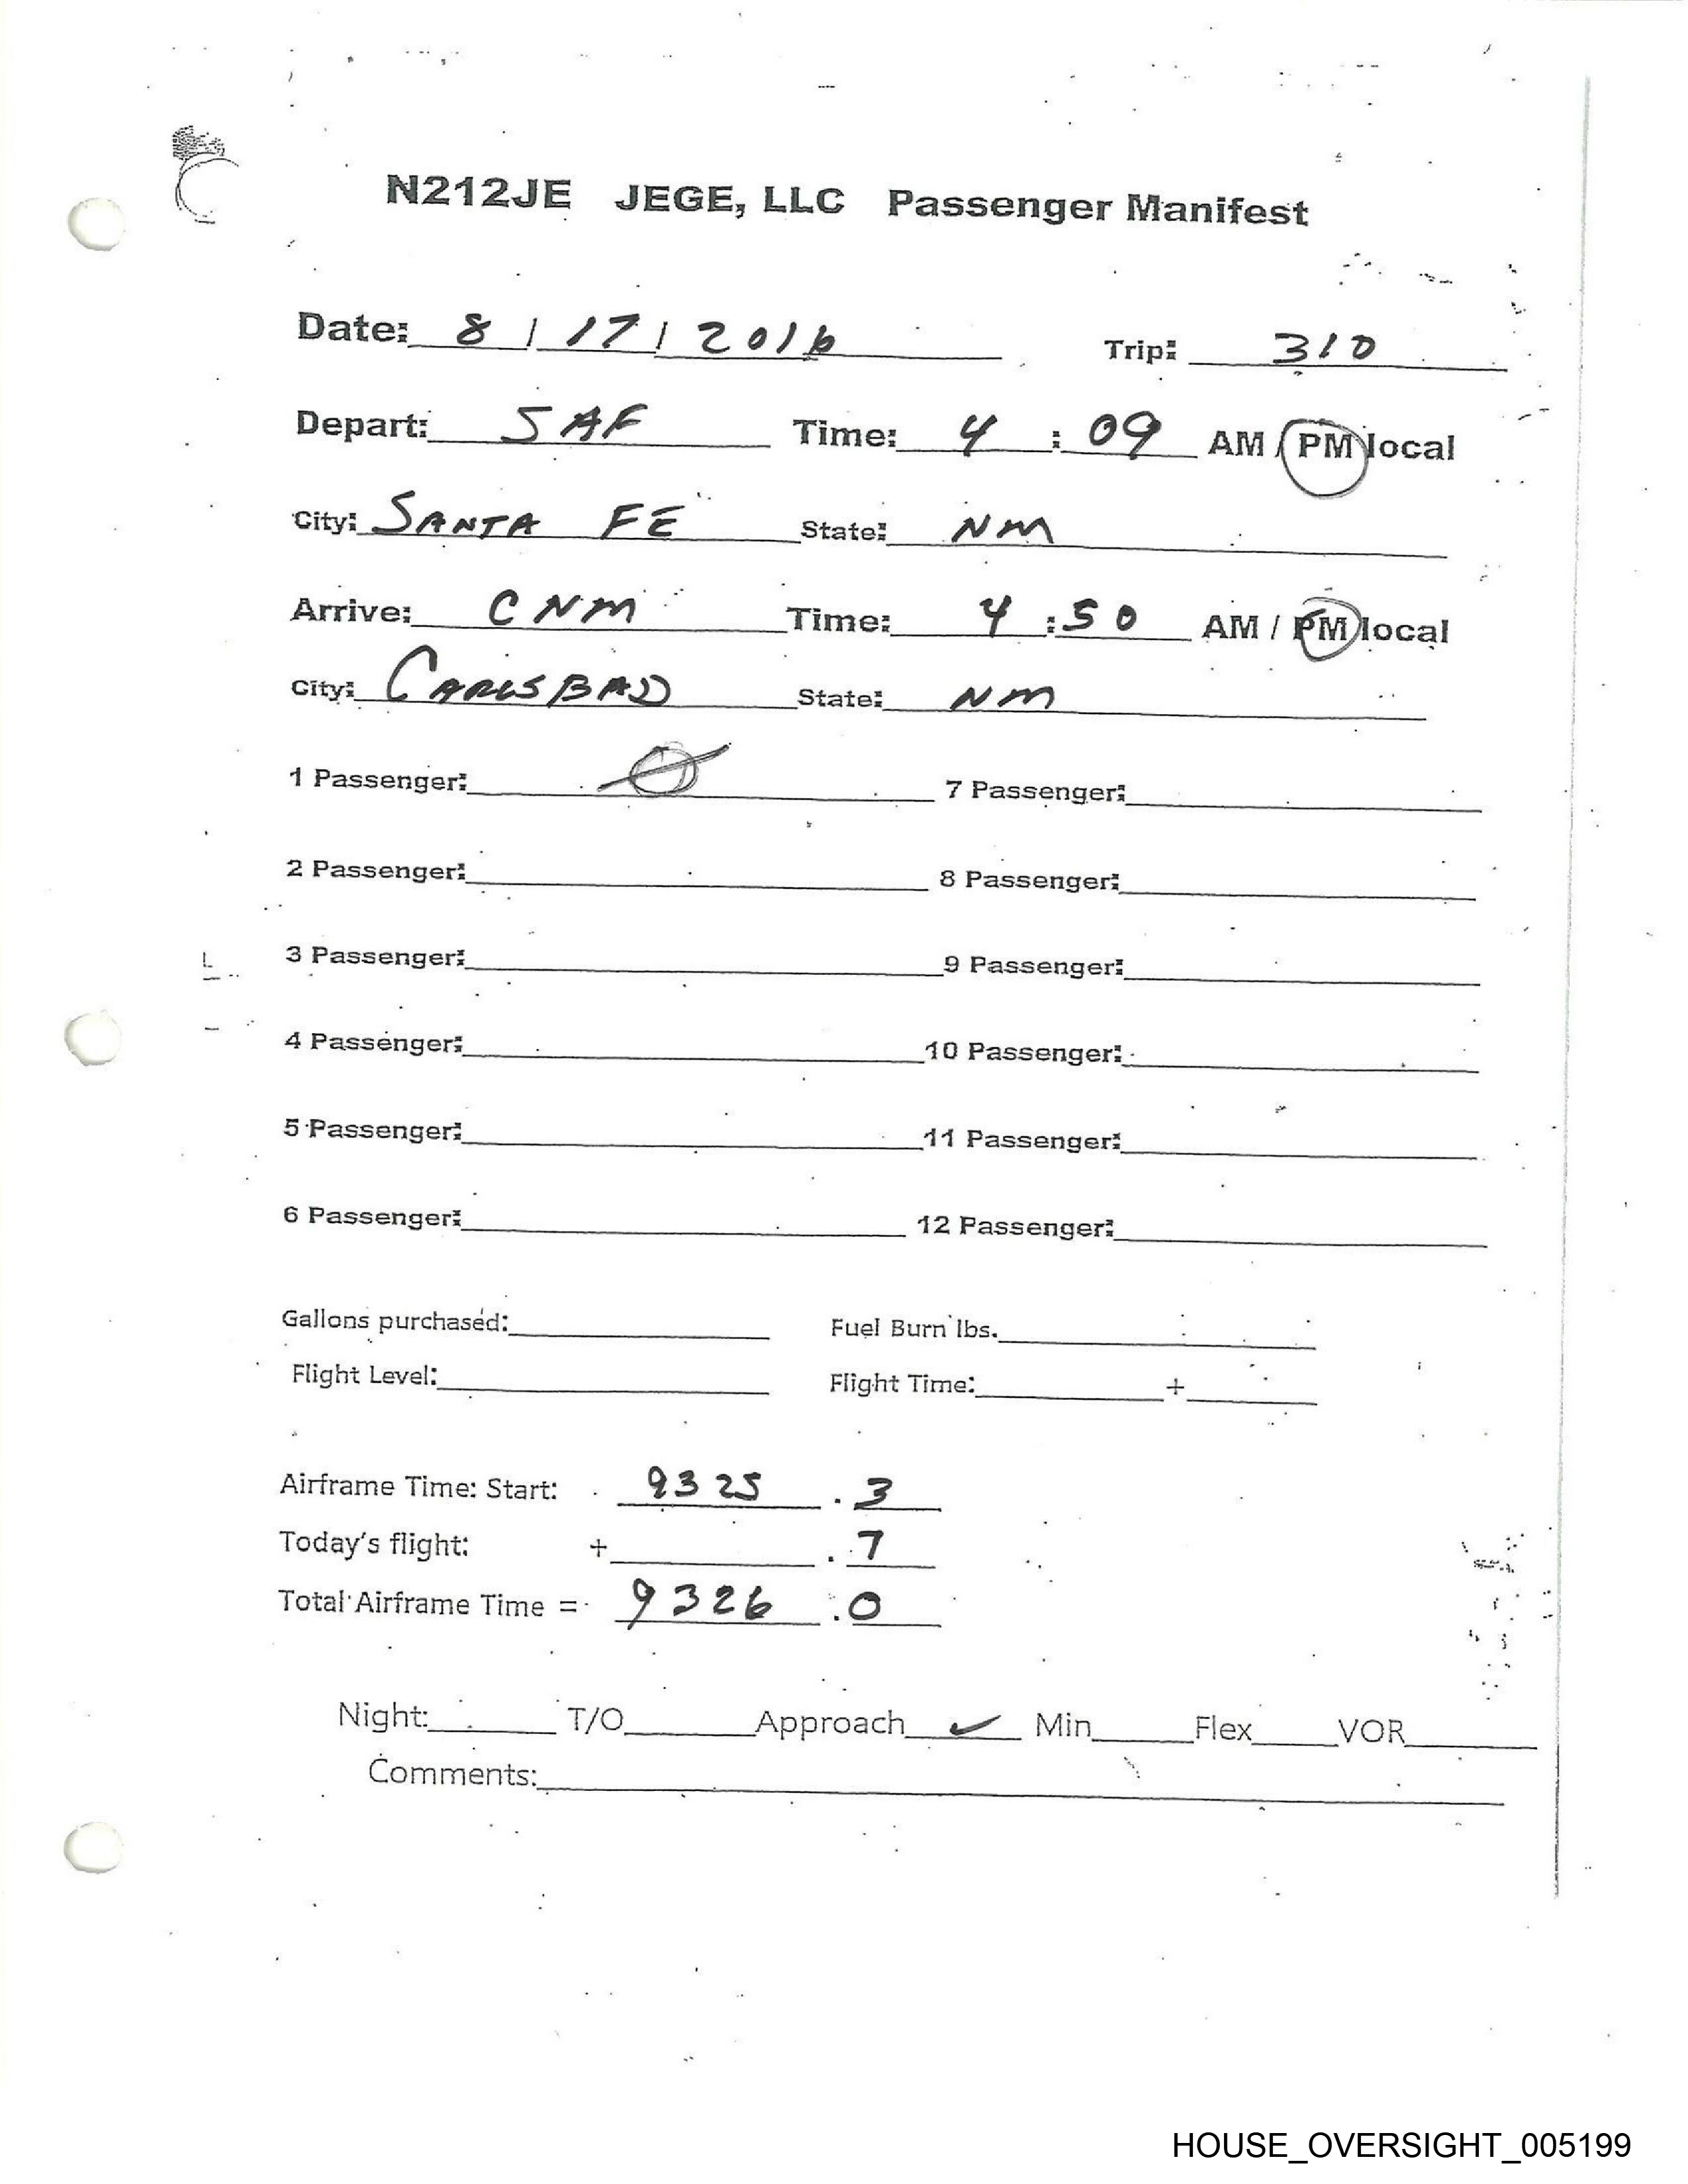 N212JE JEGE, LLC Passenger Manifest
Date: 8 / 17 / 2016 Trip: 310
Depart: SAF Time: 4 : 09 AM / PM local
City: SANTA FE State: NM
Arrive: CNM Time: 4 : 50 AM / PM local
City: CARLSBAD State: NM
1 Passenger: Ø 7 Passenger:
2 Passenger: 8 Passenger:
3 Passenger: 9 Passenger:
4 Passenger: 10 Passenger:
5 Passenger: 11 Passenger:
6 Passenger: 12 Passenger:
Gallons purchased: Fuel Burn lbs.
Flight Level: Flight Time: +
Airframe Time: Start: 9325 . 3
Today's flight: + . 7
Total Airframe Time = 9326 . 0
Night: T/O Approach ✓ Min Flex VOR
Comments:
HOUSE_OVERSIGHT_005199